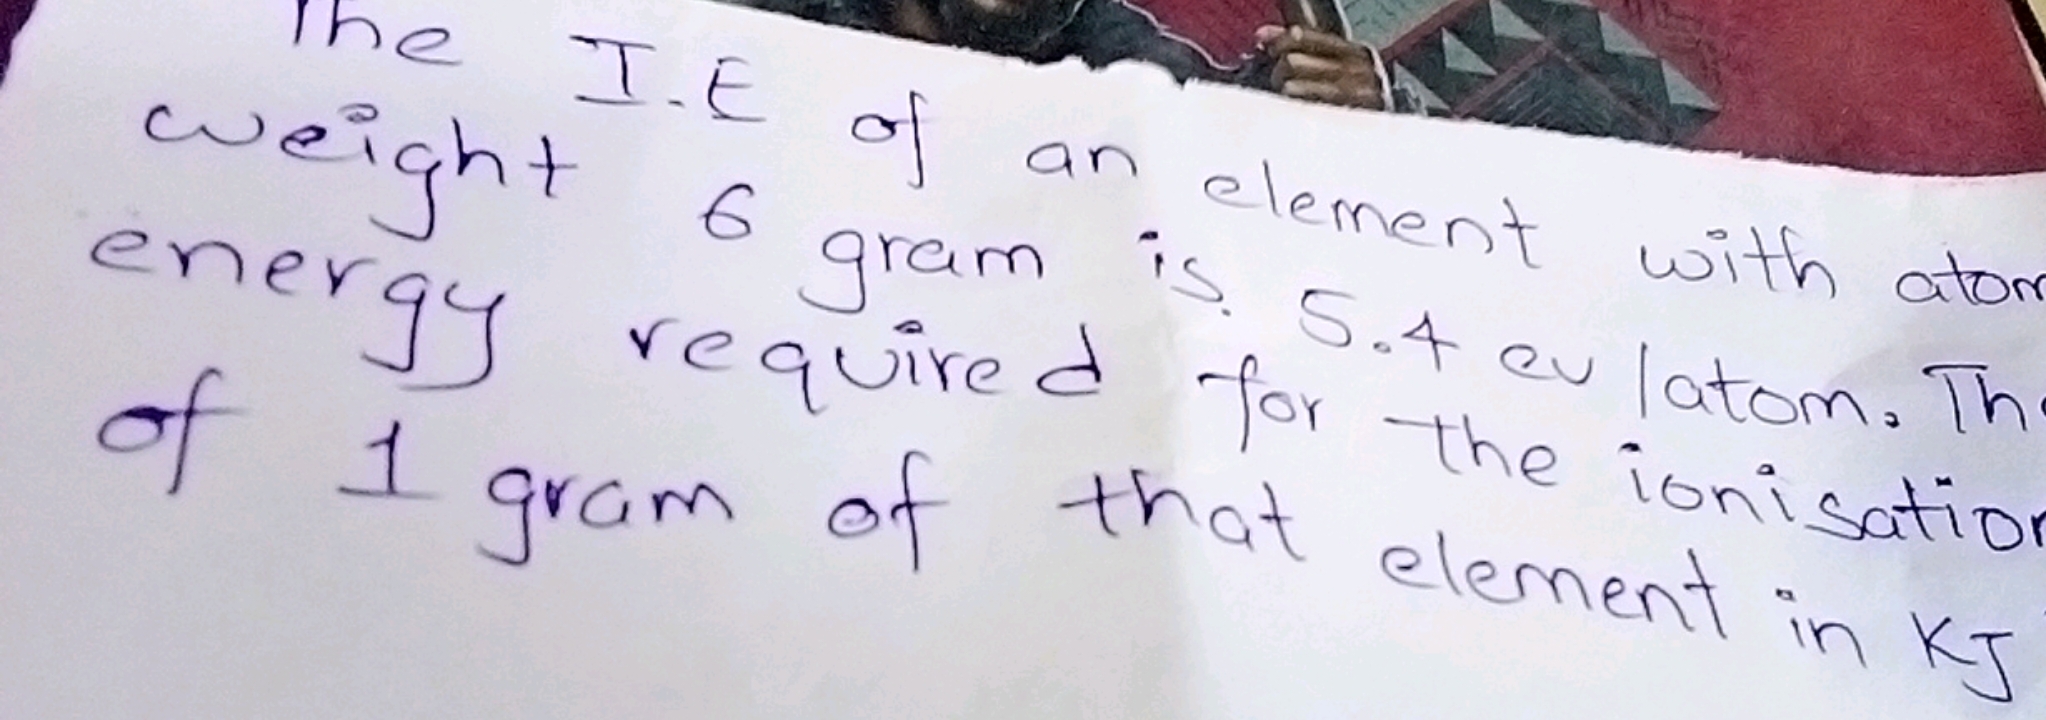 The I.E of an element with atom
weight 6 gram is 5.4 ev/atom. The
energy required for the ionisation
of 1 gram of that element in KJ